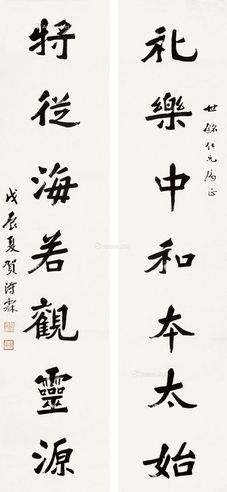 世 仁兄 正
礼樂中和夲太始
將從海若觀靈源
戊辰夏賀 霖